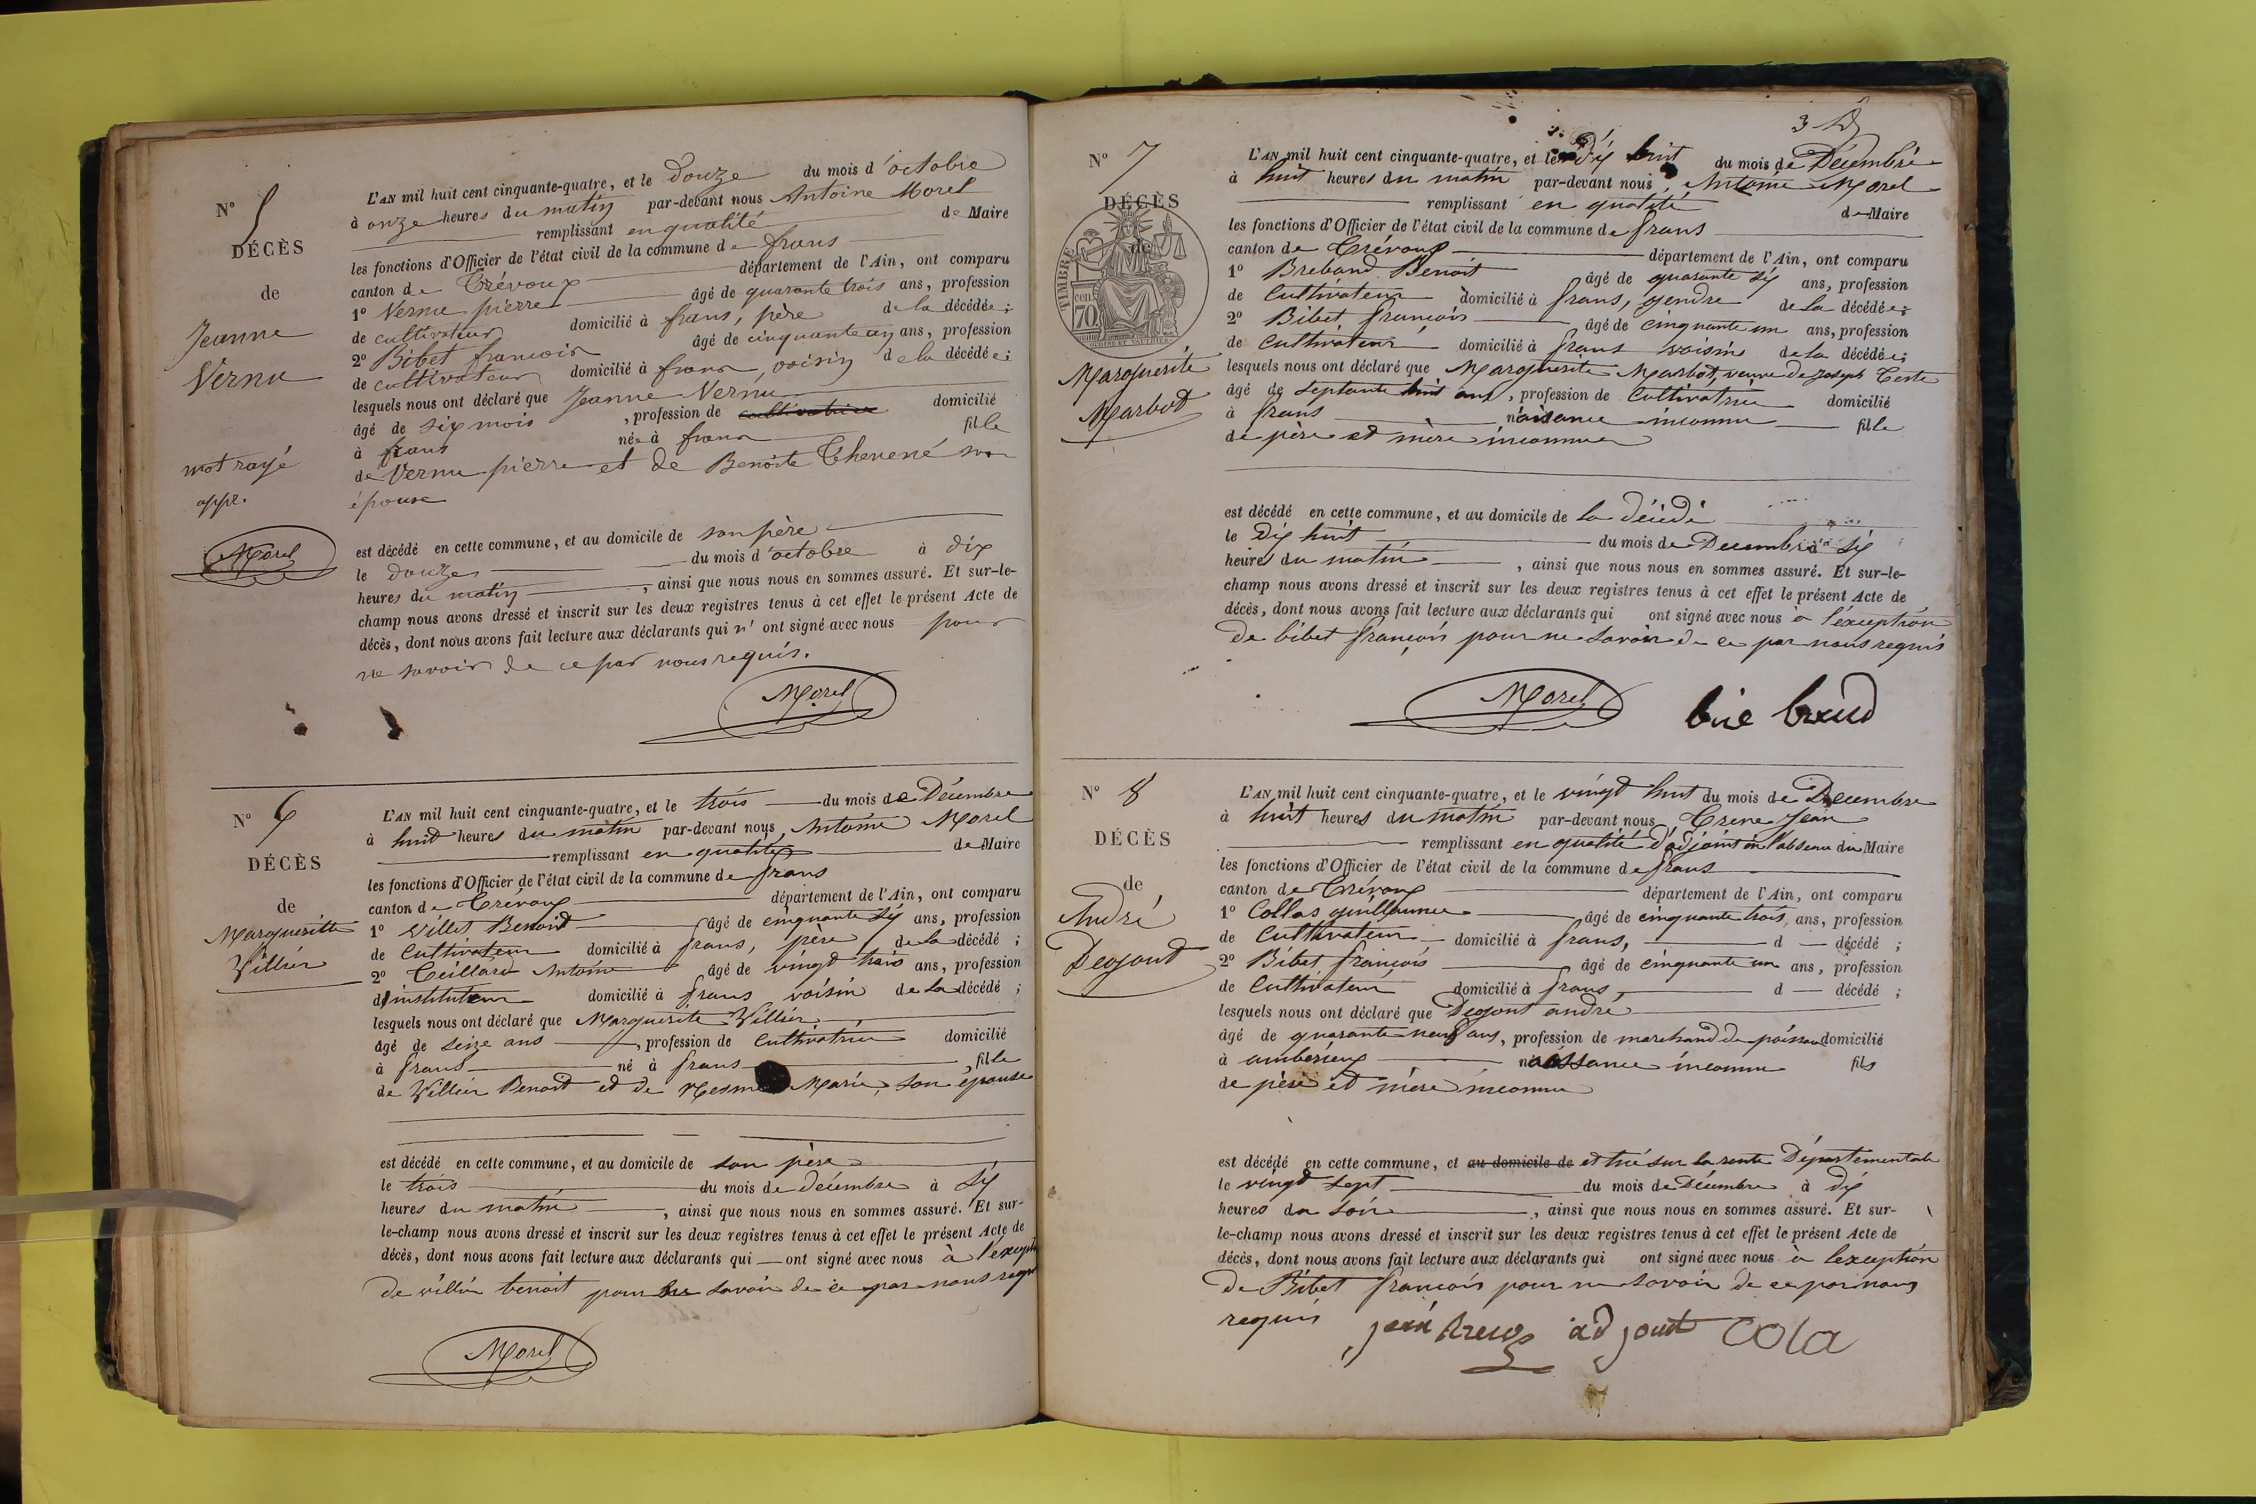 N° 5
DÉCÈS
de
Jeanne
Vernu
mot rayé
appr.
Morel
L'AN mil huit cent cinquante-quatre, et le douze du mois d'octobre
à onze heures du matin par-devant nous Antoine Morel
remplissant en qualité de Maire
les fonctions d'Officier de l'état civil de la commune de frans
canton de Trévoux département de l'Ain, ont comparu
1° Vernu pierre âgé de quarante trois ans, profession
de cultivateur domicilié à frans, père de la décédée;
2° Bibet francois âgé de cinquante un ans, profession
de cultivateur domicilié à frans, voisin de la décédée;
lesquels nous ont déclaré que Jeanne Vernu
âgé de six mois, profession de cultivatrice domicilié
à frans née à frans fille
de Vernu pierre et de Benoite Thevené son
épouse
est décédé en cette commune, et au domicile de son père
le douze du mois d'octobre à dix
heures du matin, ainsi que nous nous en sommes assuré. Et sur-le-
champ nous avons dressé et inscrit sur les deux registres tenus à cet effet le présent Acte de
décès, dont nous avons fait lecture aux déclarants qui n'ont signé avec nous pour
ne savoir de ce par nous requis.
Morel
N° 6
DÉCÈS
de
Margueritte
Villier
L'AN mil huit cent cinquante-quatre, et le trois du mois de Décembre
à huit heures du matin par-devant nous Antoine Morel
remplissant en qualité de Maire
les fonctions d'Officier de l'état civil de la commune de frans
canton de Trévoux département de l'Ain, ont comparu
1° Villet Benoit âgé de cinquante six ans, profession
de Cultivateur domicilié à frans, père de la décédé;
2° Antoine âgé de vingt trois ans, profession
d'instituteur domicilié à frans voisin de la décédé;
lesquels nous ont déclaré que Marguerite Villier
âgé de seize ans, profession de Cultivatrice domicilié
à frans né à frans, fille
de Villier Benoit et de Marie, son épouse
est décédé en cette commune, et au domicile de son père
le trois du mois de décembre à six
heures du matin, ainsi que nous nous en sommes assuré. Et sur-
le-champ nous avons dressé et inscrit sur les deux registres tenus à cet effet le présent Acte de
décès, dont nous avons fait lecture aux déclarants qui ont signé avec nous à l'except
de villier benoit pour ne savoir de ce par nous requ
Morel
3
N° 7
DÉCÈS
de
TIMBRE
cen. 70
Marguerite
Marbot
L'AN mil huit cent cinquante-quatre, et le dix huit du mois de Décembre
à huit heures du matin par-devant nous, Antoine Morel
remplissant en qualité de Maire
les fonctions d'Officier de l'état civil de la commune de frans
canton de Trévoux département de l'Ain, ont comparu
1° Breband Benoit âgé de quarante six ans, profession
de Cultivateur domicilié à frans, gendre de la décédée;
2° Bibet francois âgé de cinquante un ans, profession
de Cultivateur domicilié à frans voisin de la décédée;
lesquels nous ont déclaré que Marguerite Marbot, veuve de Joseph Teste
âgé de septante huit ans, profession de Cultivatrice domicilié
à frans naissance inconnue fille
de père et mère inconnue
est décédé en cette commune, et au domicile de la décédé
le Dix huit du mois de Decembre à six
heures du matin, ainsi que nous nous en sommes assuré. Et sur-le-
champ nous avons dressé et inscrit sur les deux registres tenus à cet effet le présent Acte de
décès, dont nous avons fait lecture aux déclarants qui ont signé avec nous à l'exception
de bibet françois pour ne savoir de ce par nous requis
Morel
N° 8
DÉCÈS
de
André
Degout
L'AN mil huit cent cinquante-quatre, et le vingt huit du mois de Decembre
à huit heures du matin par-devant nous Jean
remplissant en qualité d'adjoint en l'absence du Maire
les fonctions d'Officier de l'état civil de la commune de frans
canton de Trévoux département de l'Ain, ont comparu
1° Collas guillaume âgé de cinquante trois ans, profession
de Cultivateur domicilié à frans, d décédé;
2° Bibet francois âgé de cinquante un ans, profession
de Cultivateur domicilié à frans, d décédé;
lesquels nous ont déclaré que Degout andré
âgé de quarante neuf ans, profession de marchand de poisson domicilié
à ambérieux naissance inconnue fils
de père et mère inconnue
est décédé en cette commune, et au domicile de et tué sur la route Départementale
le vingt sept du mois de Décembre à dix
heures du soir, ainsi que nous nous en sommes assuré. Et sur-
le-champ nous avons dressé et inscrit sur les deux registres tenus à cet effet le présent Acte de
décès, dont nous avons fait lecture aux déclarants qui ont signé avec nous à l'exception
de Bibet francois pour ne savoir de ce par nous
requis
adjouit Cola